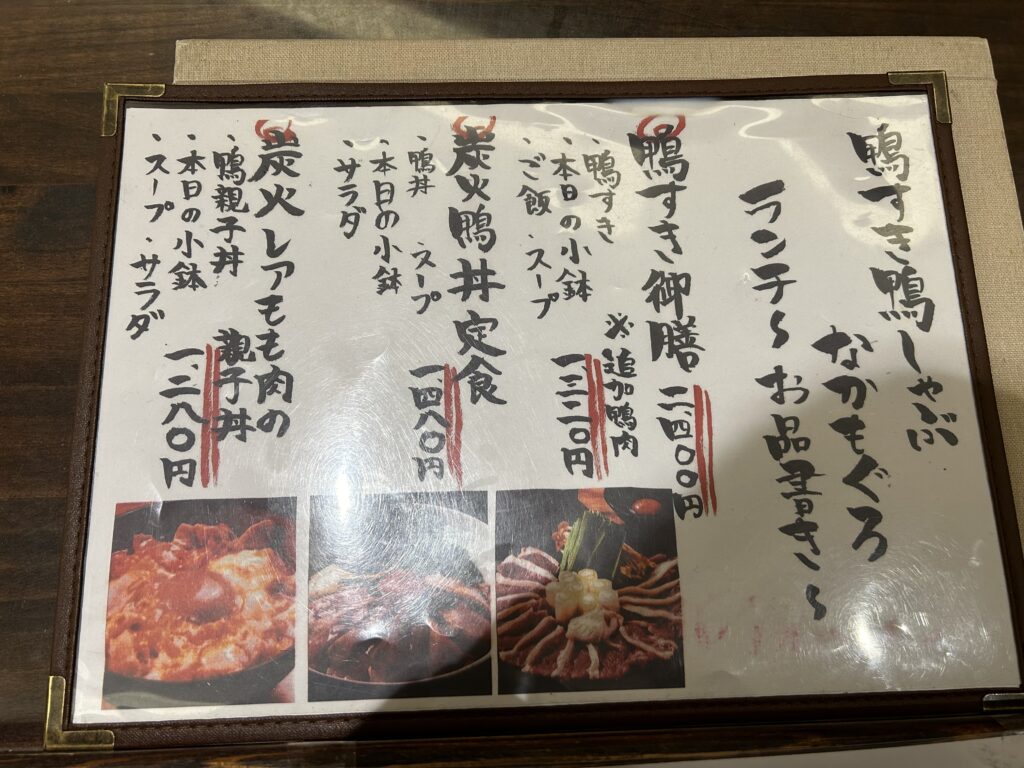 鴨すき鴨しゃぶ
なかもぐろ
ランチ〜お品書き〜
鴨すき御膳 二、四〇〇円
・鴨すき
・本日の小鉢
・ご飯・スープ
※追加鴨肉
一、三二〇円
炭火鴨丼定食
一、四八〇円
・鴨丼 ・スープ
・本日の小鉢
・サラダ
炭火レアもも肉の
親子丼
一、二八〇円
・鴨親子丼
・本日の小鉢
・スープ・サラダ